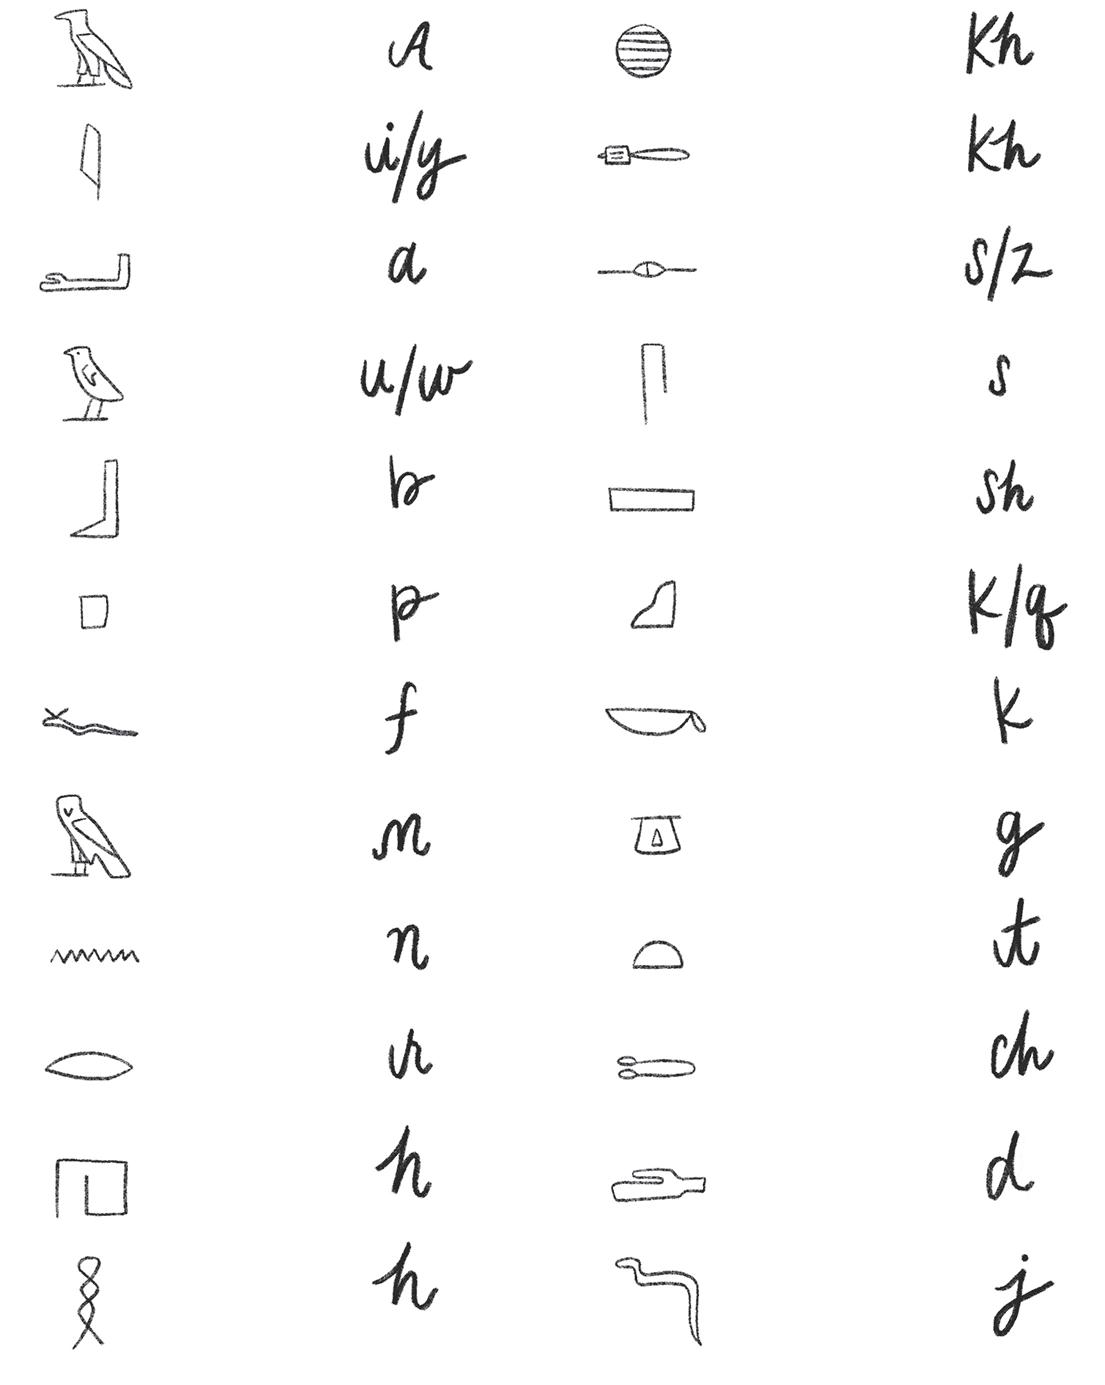 𓄿 A 𓐍 Kh
𓇋 i/y 𓄡 Kh
𓂝 a 𓊃 s/z
𓅱 u/w 𓋴 s
𓃀 b 𓈙 sh
𓊪 p 𓈎 K/q
𓆑 f 𓎡 K
𓅓 m 𓎼 g
𓈖 n 𓏏 t
𓂋 r 𓍿 ch
𓉔 h 𓂧 d
𓎛 h 𓆓 j